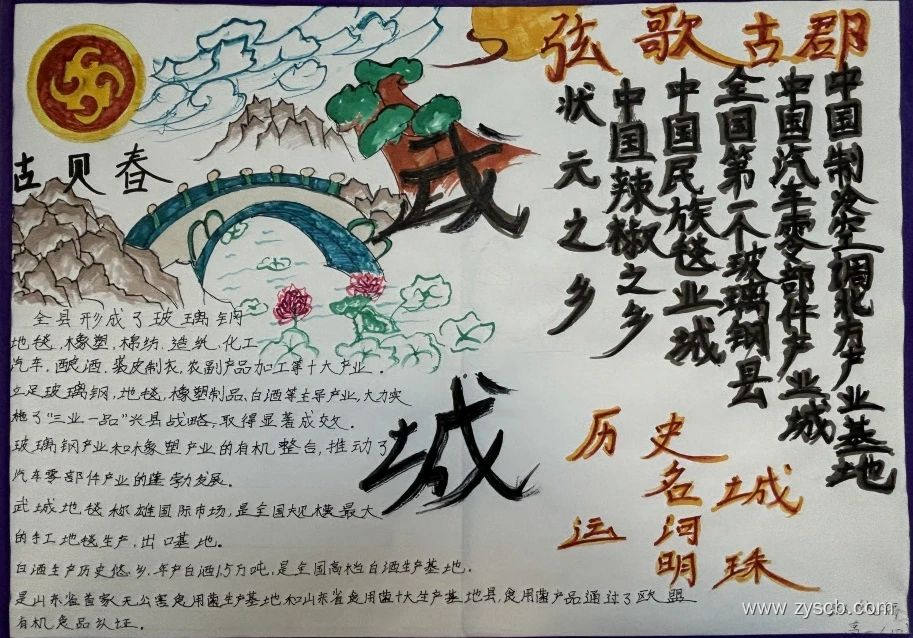 弦歌古郡
中国制冷空调北方产业基地
中国汽车零部件产业城
全国第一个玻璃钢县
中国民族毯业城
中国辣椒之乡
状元之乡
古贝春
武城
历史名城
运河明珠
全县形成了玻璃钢
地毯、橡塑、棉纺、造纸、化工
汽车、酿酒、裘皮制衣、农副产品加工等十大产业。
立足玻璃钢,地毯,橡塑制品、白酒等主导产业,大力实
施了"三业一品"兴县战略,取得显著成效。
玻璃钢产业和橡塑产业的有机整合,推动了
汽车零部件产业的蓬勃发展。
武城地毯称雄国际市场,是全国规模最大
的手工地毯生产,出口基地。
白酒生产历史悠久,年产白酒1.5万吨,是全国高档白酒生产基地。
是山东省首家无公害食用菌生产基地和山东省食用菌十大生产基地县,食用菌产品通过了欧盟
有机食品认证。
www.zyscb.com